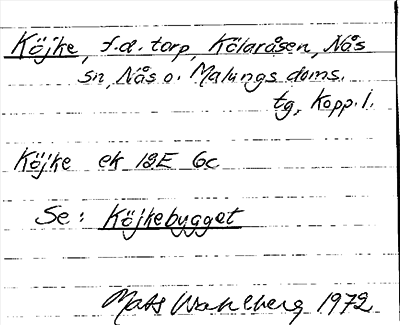 Köjke, f.d. torp, Kölaråsen, Nås
sn, Nås o. Malungs doms.
tg, Kopp. l.
Köjke ek 12E 6c
Se: Köjkebygget
Mats Wahlberg 1972